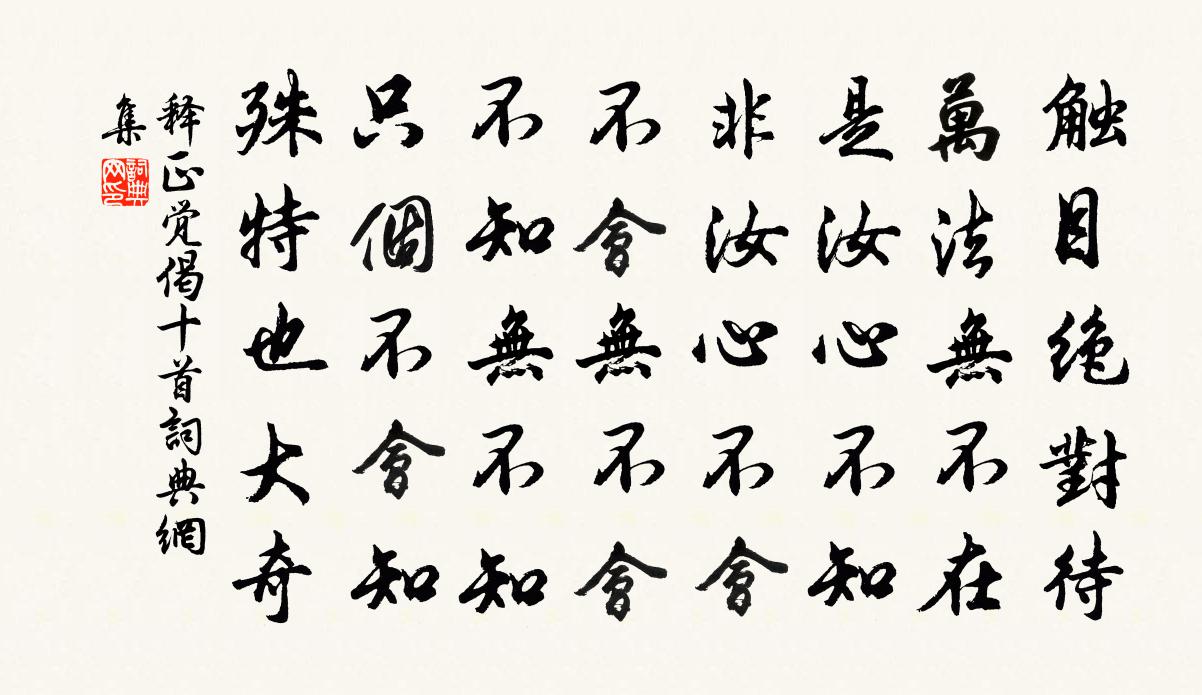 触目绝對待
萬法無不在
是汝心不知
非汝心不會
不會無不會
不知無不知
只個不會知
殊特也大奇
释正觉偈十首詞典網
集
詞典
網印